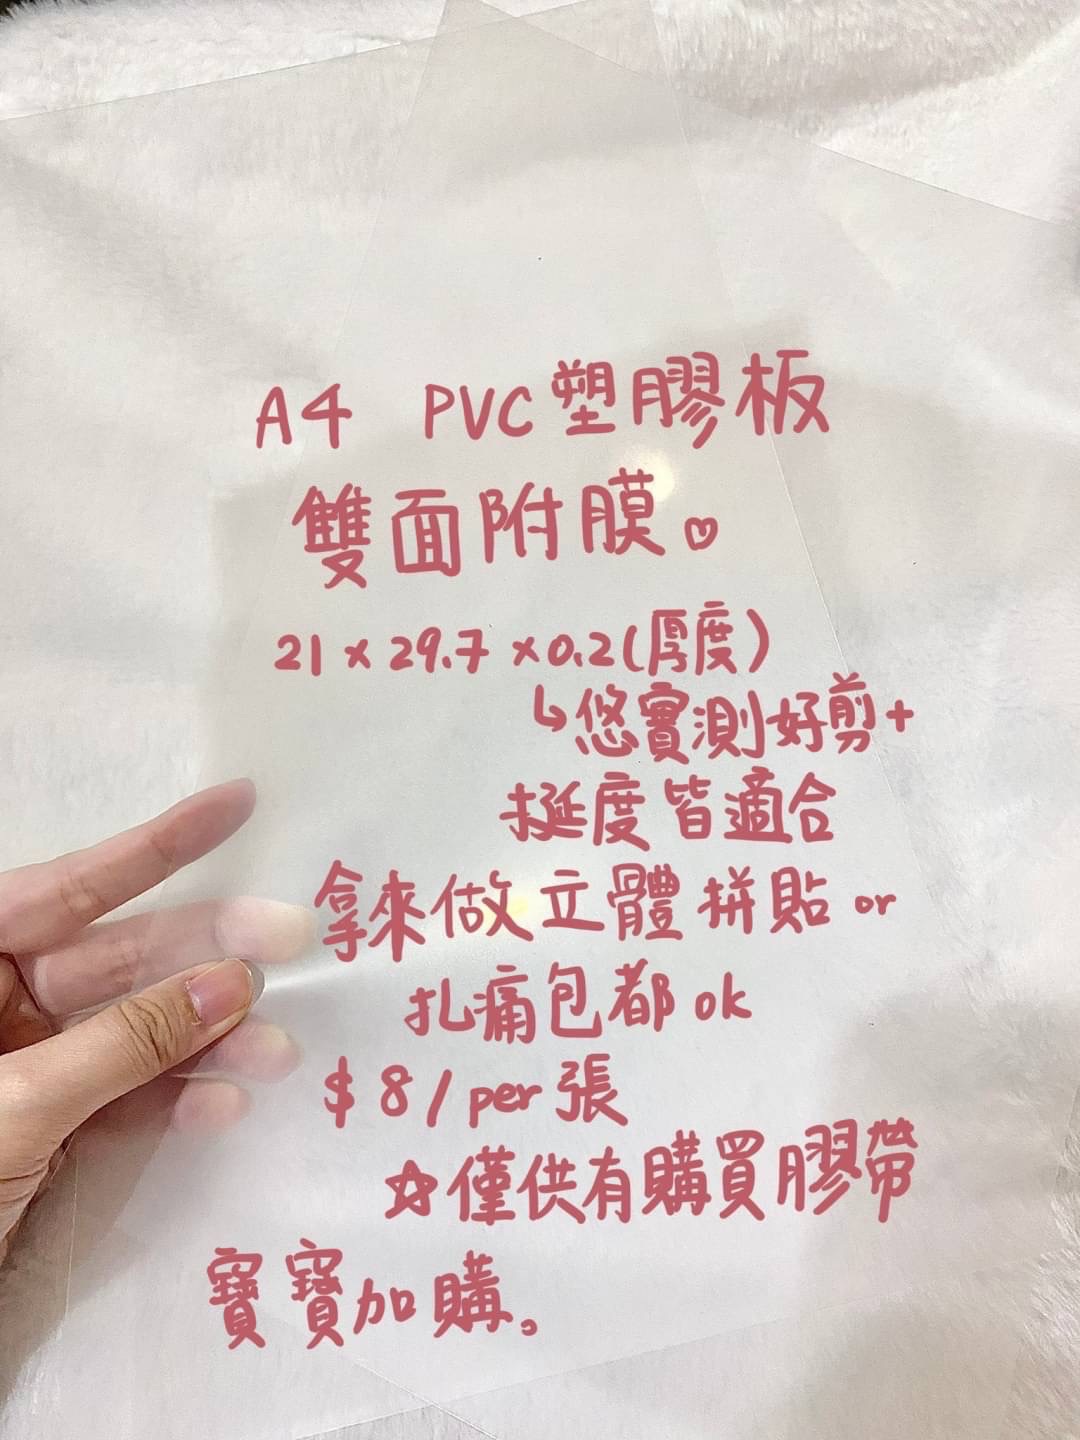 A4 PVC塑膠板
雙面附膜。♡
21 x 29.7 x 0.2(厚度)
↳悠實測好剪+
挺度皆適合
拿來做立體拼貼 or
扎痛包都 ok
$ 8 / per 張
☆僅供有購買膠帶
寶寶加購。